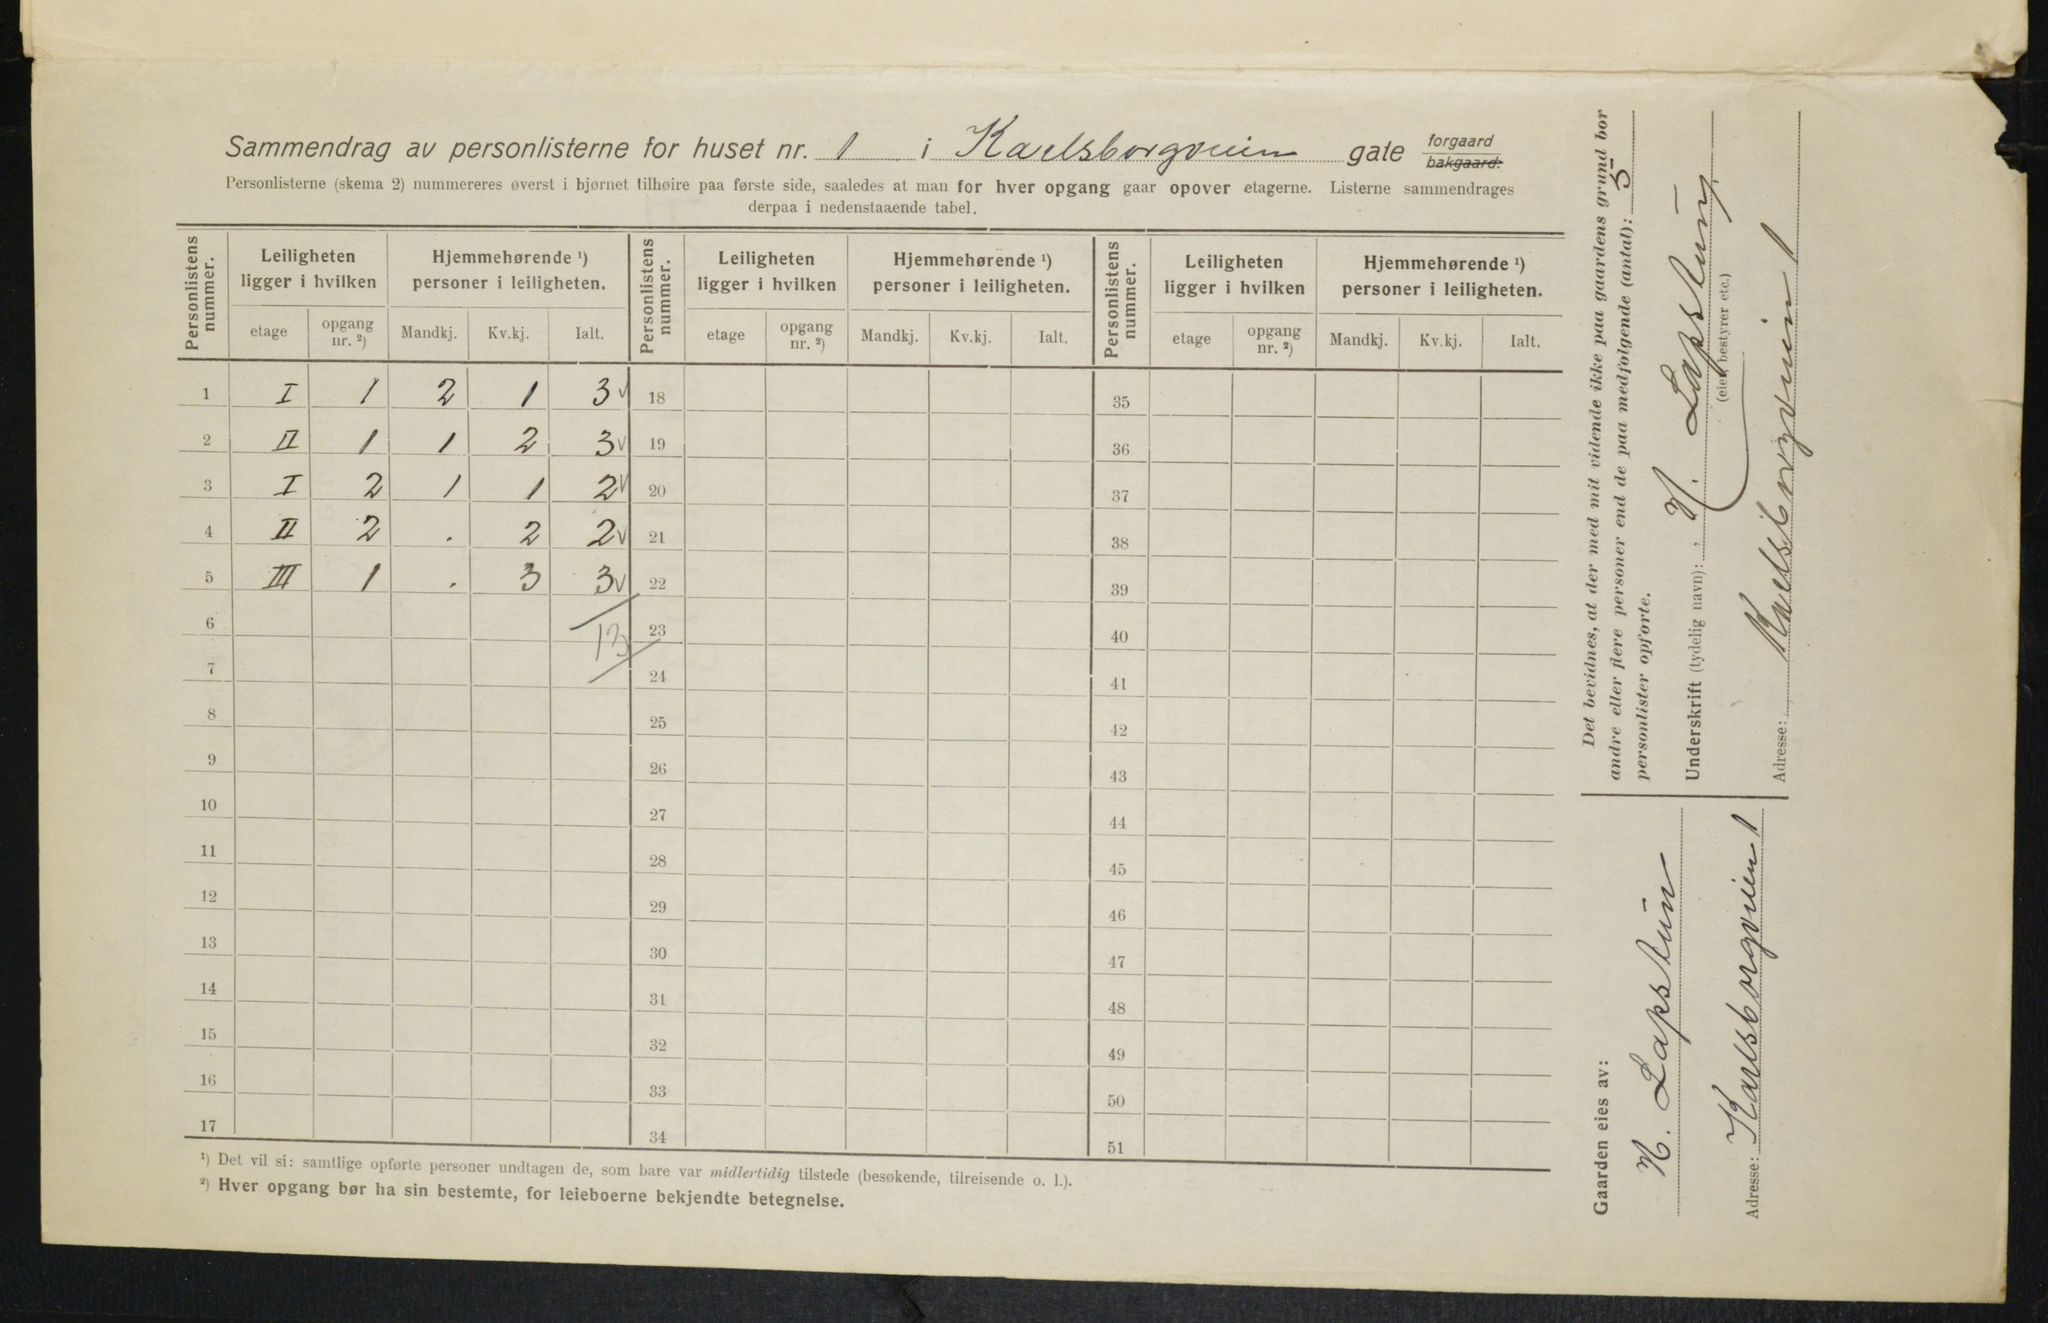 Sammendrag av personlisterne for huset nr. 1 i Karlsborgveien gate forgaard bakgaard.
Personlisterne (skema 2) nummereres øverst i hjørnet tilhøire paa første side, saaledes at man for hver opgang gaar opover etagerne. Listerne sammendrages
derpaa i nedenstaaende tabel.
Personlistens nummer. Leiligheten ligger i hvilken Hjemmehørende ¹) personer i leiligheten. Personlistens nummer. Leiligheten ligger i hvilken Hjemmehørende ¹) personer i leiligheten. Personlistens nummer. Leiligheten ligger i hvilken Hjemmehørende ¹) personer i leiligheten.
etage opgang nr. ²) Mandkj. Kv.kj. Ialt. etage opgang nr. ²) Mandkj. Kv.kj. Ialt. etage opgang nr. ²) Mandkj. Kv.kj. Ialt.
1 I 1 2 1 3 v 18 35
2 II 1 1 2 3 v 19 36
3 I 2 1 1 2 v 20 37
4 II 2 . 2 2 v 21 38
5 III 1 . 3 3 v 22 39
6 13 23 40
7 24 41
8 25 42
9 26 43
10 27 44
11 28 45
12 29 46
13 30 47
14 31 48
15 32 49
16 33 50
17 34 51
¹) Det vil si: samtlige opførte personer undtagen de, som bare var midlertidig tilstede (besøkende, tilreisende o. l.).
²) Hver opgang bør ha sin bestemte, for leieboerne bekjendte betegnelse.
Det bevidnes, at der med mit vidende ikke paa gaardens grund bor
andre eller flere personer end de paa medfølgende (antal): 5
personlister opførte.
Underskrift (tydelig navn): N. Lapstun
(eier, bestyrer etc.)
Adresse: Karlsborgveien 1
Gaarden eies av:
N. Lapstun
Adresse: Karlsborgveien 1